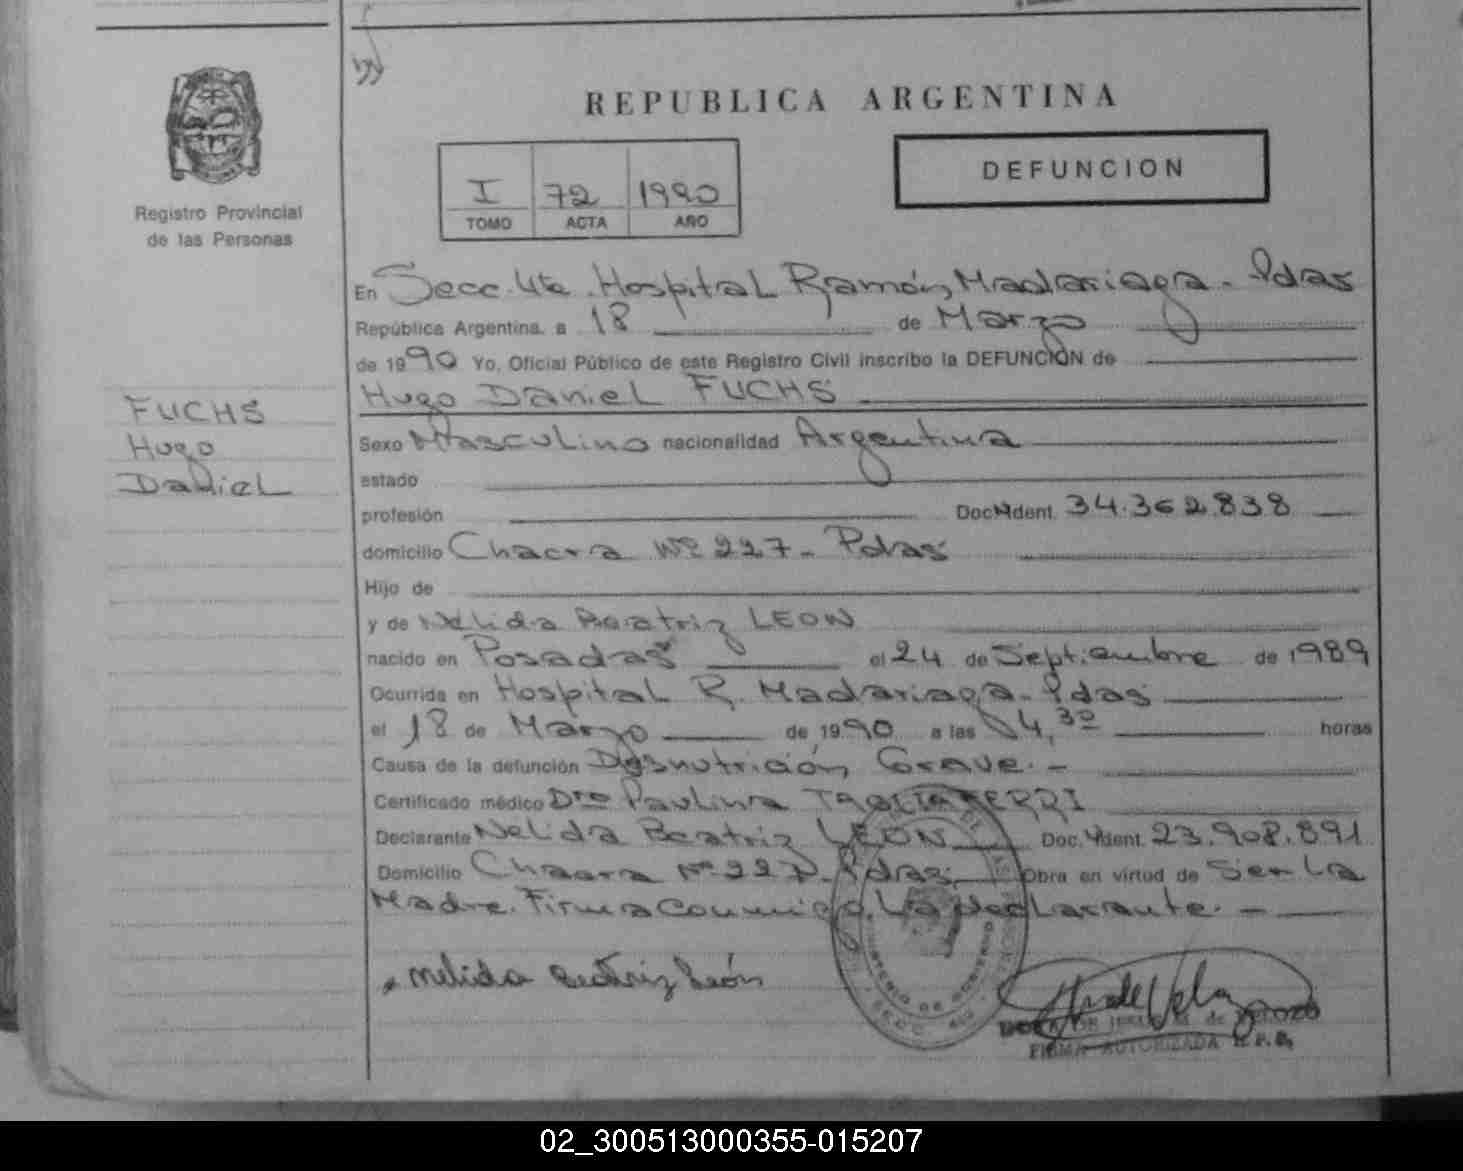 REPUBLICA ARGENTINA
I 72 1990
TOMO ACTA AÑO
DEFUNCION
Registro Provincial
de las Personas
FUCHS
Hugo
Daniel
En Secc. 4ta. Hospital Ramón Madariaga - Pdas
República Argentina, a 18 de Marzo
de 1990 Yo, Oficial Público de este Registro Civil inscribo la DEFUNCIÓN de
Hugo Daniel FUCHS
Sexo Masculino nacionalidad Argentina
estado
profesión Doc. Ident. 34.362.838
domicilio Chacra Nº 227 - Pdas
Hijo de
y de Nélida Beatriz LEON
nacido en Posadas el 24 de Septiembre de 1989
Ocurrida en Hospital R. Madariaga - Pdas
el 18 de Marzo de 1990 a las 4,30 horas
Causa de la defunción Desnutrición Grave. -
Certificado médico Dra Paulina TAGLIAFERRI
Declarante Nelida Beatriz LEON Doc. Ident. 23.908.891
Domicilio Chacra Nº 227 - Pdas. Obra en virtud de Ser La
Madre. Firma Conmigo, La Declarante. -
Nelida Beatriz León
MINISTERIO DE GOBIERNO
FIRMA AUTORIZADA R.P.P.
02_300513000355-015207